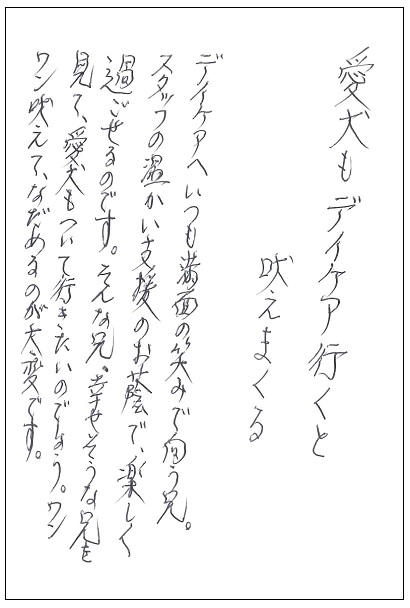 愛犬もデイケア行くと
吠えまくる
デイケアへいつも満面の笑みで向う兄。
スタッフの温かい支援のお蔭で、楽しく
過ごせるのです。そんな兄。幸せそうな兄を
見て、愛犬もついて行きたいのでしょう。ワン
ワン吠えて、なだめるのが大変です。